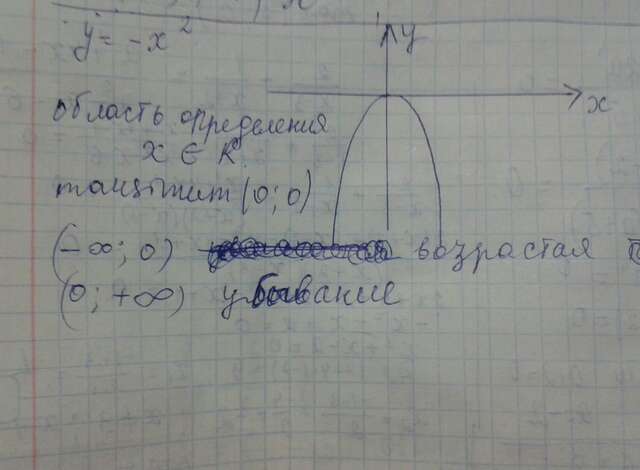 y = -x²
y
x
область определения
x ∈ R
(0; 0)
(-∞; 0) возрастая
(0; +∞) убывание